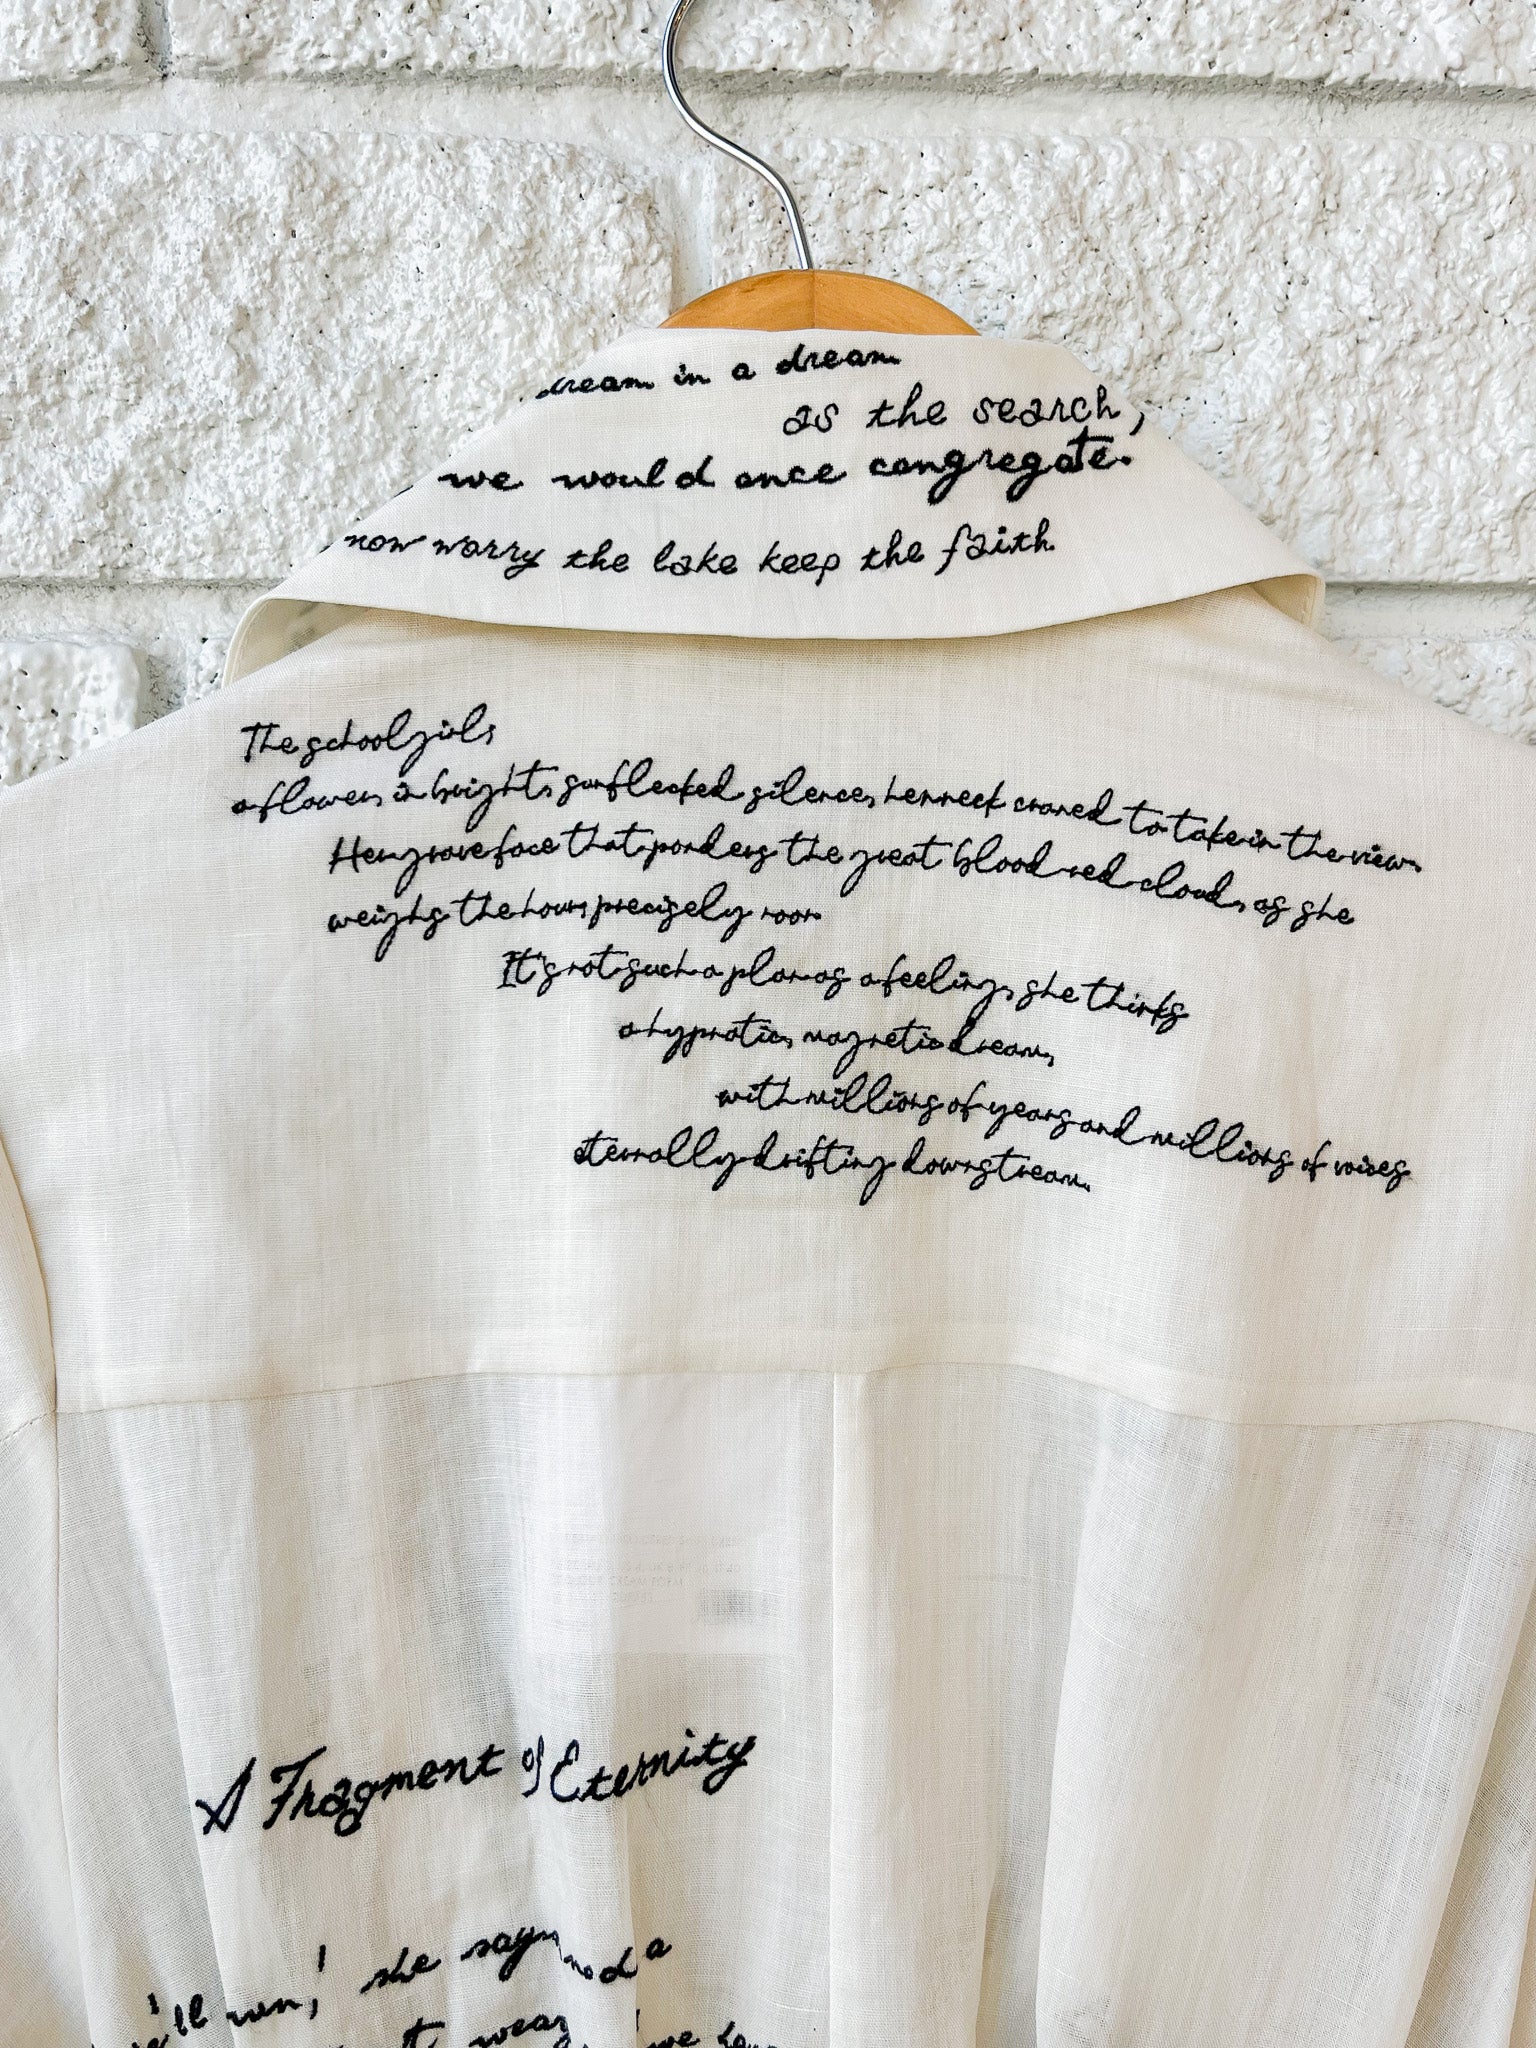 dream in a dream
as the search,
we would once congregate.
now worry the lake keep the faith
The schoolgirl,
a flower, in bright, sunflecked silence, her neck craned to take in the view.
Her grave face that ponders the great blood-red cloud, as she
weighs the hours precisely
It's not such a plan as a feeling, she thinks
a hypnotic, magnetic dream,
with millions of years and millions of voices
eternally drifting downstream.
A Fragment of Eternity
'll run,' she says
a
wear
we